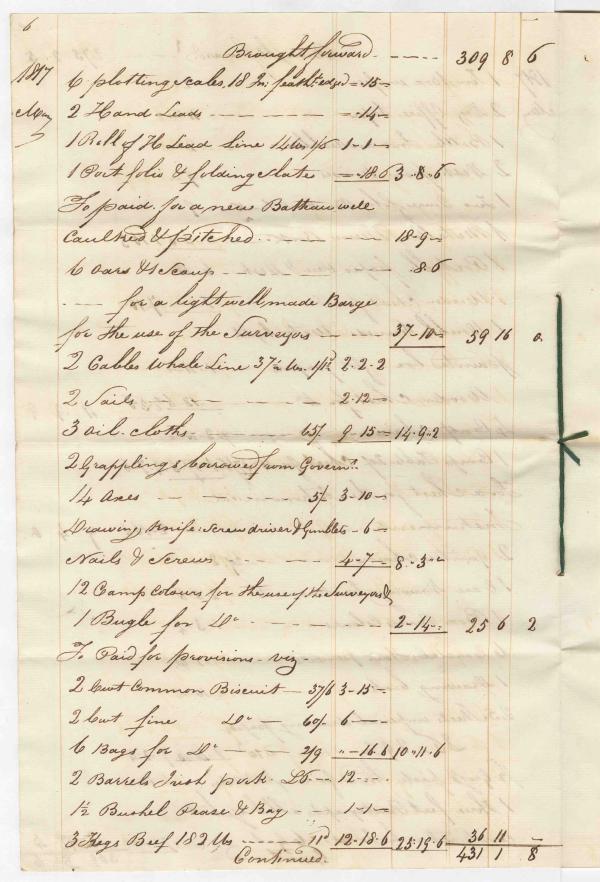 6
Brought forward - - - - 309 8 6
1817 6 plotting Scales, 18 In: feath: edged = " 15 =
May 2 Hand Leads - - - - - = " 14 =
1 Roll of H Lead Line 14 lbs 1/6 1 - 1 =
1 Port folio & folding Slate = " 18 " 6 3 " 8 " 6
To paid for a new Batteau well
Caulked & pitched - - - - 18 - 9 =
6 Oars & 1 Scoup - - - - " 8 " 6
- - - - for a light well made Barge
for the use of the Surveyors - - - 37 - 10 = 59 16 0
2 Cables Whale Line 37½ lbs. 2 - 2 - 2
2 Sails - - - - 2 - 12 =
3 oil-cloths - - - - 65/ 9 - 15 = 14 " 9 " 2
2 Graplings borrowed from Governt.
14 Axes - - - - 5/ 3 - 10 =
Drawing Knife: Screw driver & Gimblets - 6 =
Nails & Screws - - - - 4 - 7 = 8 " 3 "
12 Camp Colours for the use of the Surveyors &
1 Bugle for Do - - - - 2 - 14 - 25 6 2
To Paid for provisions - viz
2 Cwt Common Biscuit - 37/6 3 - 15 =
2 Cwt fine Do - 60/ 6 - -
6 Bags for Do - - - 2/9 " - 16 " 6 10 " 11 " 6
2 Barrels Irish pork - £6 - 12 - -
1½ Bushel Pease & Bag - - 1 - 1 =
3 Kegs Beef 182 lbs - - - 12 - 18 " 6 25 " 19 " 6 36 11 -
Continued. 431 1 8